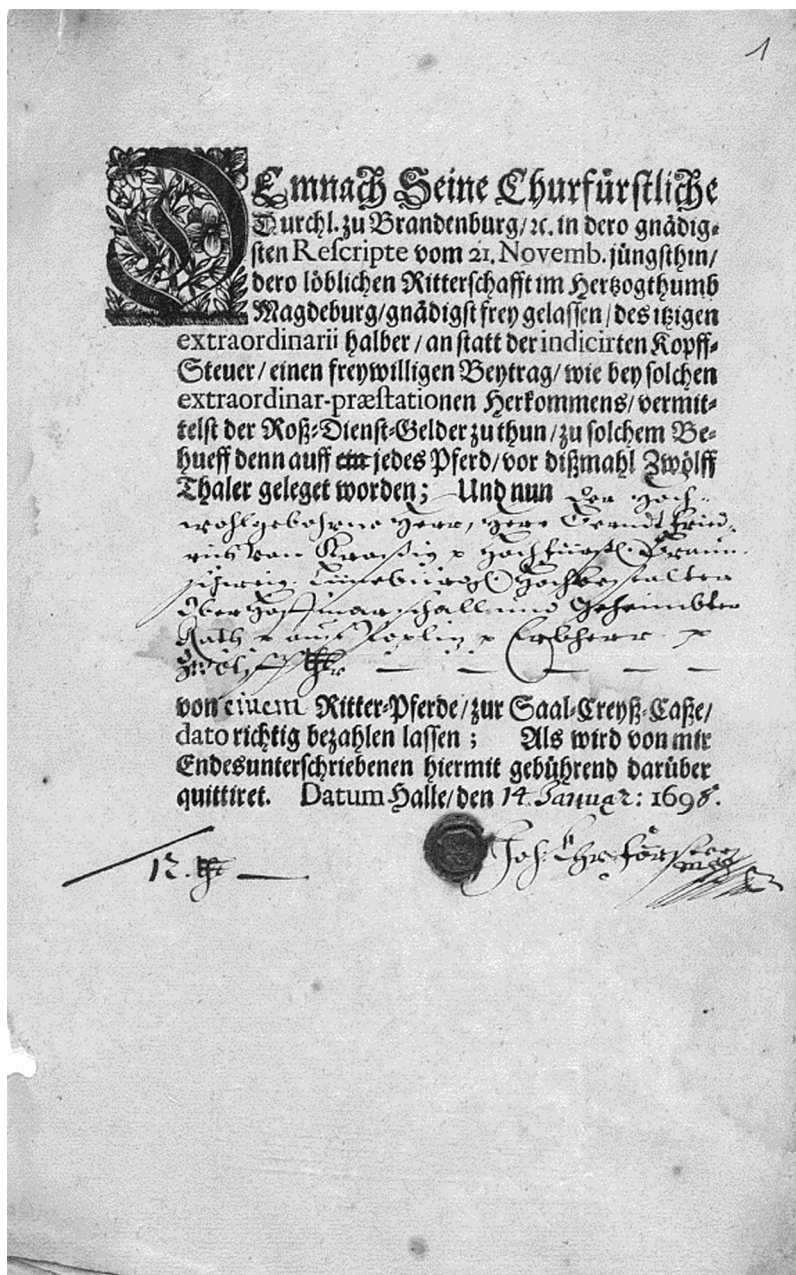 1
DEmnach Seine Churfürstliche
Durchl. zu Brandenburg/ ꝛc. in dero gnädig⸗
sten Rescripte vom 21. Novemb. jüngsthin/
dero löblichen Ritterschafft im Hertzogthumb
Magdeburg/ gnädigst frey gelassen/ des itzigen
extraordinarii halber/ an statt der indicirten Kopff⸗
Steuer/ einen freywilligen Beytrag/ wie bey solchen
extraordinar-præstationen Herkommens/ vermit⸗
telst der Roß⸗Dienst⸗Gelder zu thun/ zu solchem Be⸗
hueff denn auff ein jedes Pferd/ vor dißmahl Zwölff
Thaler geleget worden; Und nun der Hoch⸗
wohlgebohrne Herr, Herr Berndt Fried⸗
rich von Kroßig p Hochfürstl. Braun⸗
schweig. Lüneburgl. Hochbestalter
Ober Hoffmarschall und Geheimbter
Rath p auf Poplitz p Erbherr p
Zwölff Thlr
von einem Ritter⸗Pferde/ zur Saal⸗Creyß⸗Caße/
dato richtig bezahlen lassen; Als wird von mir
Endesunterschriebenen hiermit gebührend darüber
quittiret. Datum Halle/ den 14. Januar: 1698.
12. Thlr
Joh. Chr. Förster